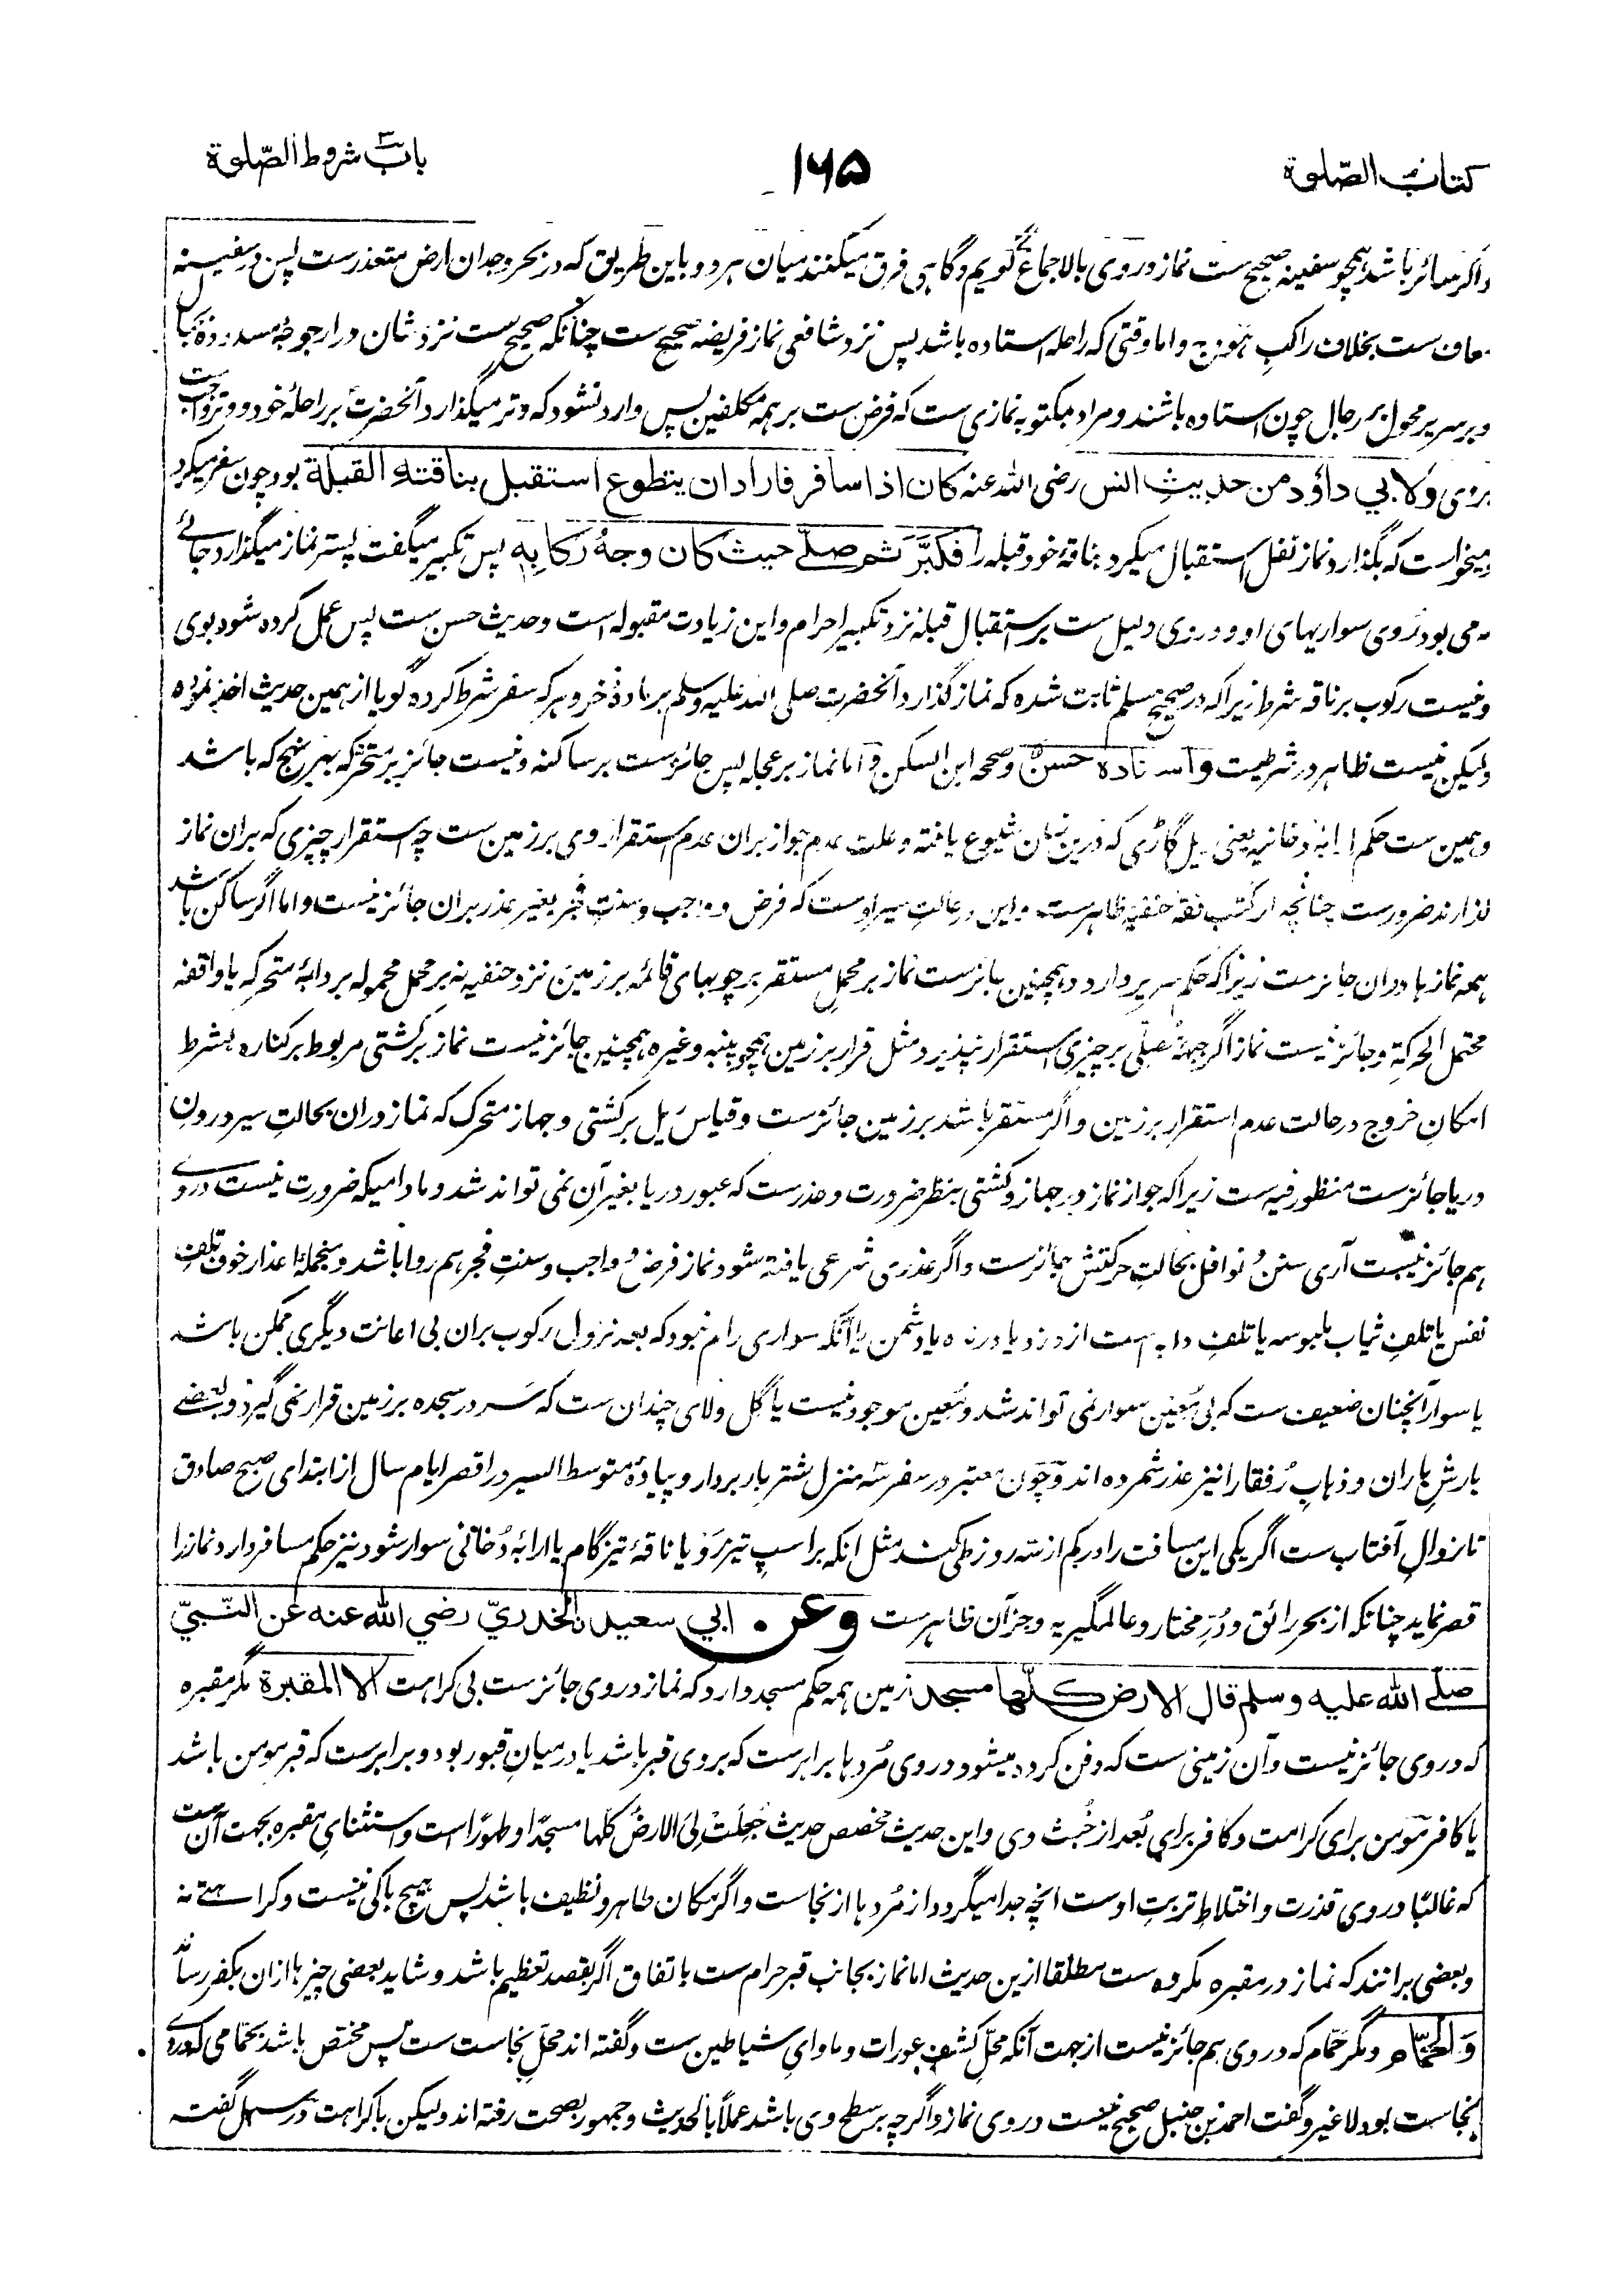 کتاب الصّلوة
۱۶۵
باب شروط الصّلوة
واگر سائر باشد ہمچو سفینہ صحیح ست نماز در وی بالاجماع گویم وگاہی فرق میکنند میان ہر دو باین طریق کہ در بحر وجدان ارض متعذرست پس در سفینہ
معاف ست بخلاف راکبِ ہودج واما وقتی کہ راحلہ استادہ باشد پس نزد شافعی نماز فریضہ صحیح ست چنانکہ صحیح ست نزد شان در ارجوحۂ مسدودہ بحبال
وبر سریر محمول بر رجال چون استادہ باشند ومراد بمکتوبہ نمازی ست کہ فرض ست بر ہمہ مکلفین پس وارد نشود کہ وتر میگذارد آنحضرتؐ بر راحلۂ خود ووتر واجب ست
بروی وَلابي داؤد من حديثِ انس رضی الله عنہ كان اذا سافر فاراد ان يتطوع استقبل بناقتهِ القبلة بود چون سفر میکرد
ومیخواست کہ بگذارد نماز نفل استقبال میکرد بناقۂ خود قبلہ را فكبَّر ثم صلّے حيث كان وجهُ ركابِهٖ پس تکبیر میگفت پستر نماز میگذارد جائے
کہ می بود روی سواریہای او ودرزی دلیل ست بر استقبال قبلہ نزد تکبیر احرام واین زیادت مقبولہ است وحدیث حسن ست پس عمل کردہ شود بوی
ونیست رکوب بر ناقہ شرط زیرا کہ در صحیح مسلم ثابت شدہ کہ نماز گذارد آنحضرت صلی الله علیہ وسلم بر مادۂ خر وہر کہ سفر شرط کردہ گویا از ہمین حدیث اخذ نمودہ
ولیکن نیست ظاہر در شرطیت واسنادہ حسنٌ وصححہ ابن السکن واما نماز بر عجالہ پس جائزست بر ساکنہ ونیست جائز بر متحرکہ بہر نہج کہ باشد
وہمین ست حکم ارابۂ دخانیہ یعنی ریل گاڑی کہ درین زمان شیوع یافتہ وعلت عدم جواز بران عدم استقرار وی بر زمین ست چہ استقرار چیزی کہ بران نماز
گذارند ضرورست چنانچہ از کتب فقہ حنفیہ ظاہرست واین در حالت سیر اوست کہ فرض وواجب وسنتِ فجر بغیر عذر بران جائز نیست واما اگر ساکن باشد
ہمہ نمازہا دران جائزست زیرا کہ حکم سریر دارد وہمچنین جائزست نماز بر محمل مستقر بر چوبہای قائمہ بر زمین نزد حنفیہ نہ بر محمل محمولہ بر دابۂ متحرکہ یا واقفہ
محتمل الحرکة وجائز نیست نماز اگر جبہۂ مصلّی بر چیزی استقرار نپذیرد مثل قرار بر زمین ہمچو پنبہ وغیرہ ہمچنین جائز نیست نماز بر کشتی مربوط بر کنارہ بشرط
امکانِ خروج در حالت عدم استقرار بر زمین واگر مستقر باشد بر زمین جائزست وقیاس ریل بر کشتی وجہاز متحرک کہ نماز دران بحالتِ سیر درون
دریا جائزست منظور فیہ ست زیرا کہ جواز نماز در جہاز وکشتی بنظر ضرورت وعذرست کہ عبور دریا بغیر آن نمی تواند شد ومادامیکہ ضرورت نیست در وے
ہم جائز نیست آری سنن و نوافل بحالتِ حرکتش جائزست واگر عذری شرعی یافتہ شود نماز فرض و واجب وسنتِ فجر ہم روا باشد ومنجملۂ اعذار خوف تلفِ
نفس یا تلفِ ثیاب ملبوسہ یا تلفِ دابہ است از دزد یا درندہ یا دشمن یا آنکہ سواری رام نبود کہ بعد نزول رکوب بران بی اعانت دیگری ممکن باشد
یا سوار آنچنان ضعیف ست کہ بی مُعین سوار نمی تواند شد ومُعین موجود نیست یا گِل ولای چندان ست کہ سر در سجدہ بر زمین قرار نمی گیرد وبعضے
بارشِ باران وذہابِ رُفقا را نیز عذر شمردہ اند وچون معتبر در سفر سہ منزل شتر بار بردار وپیادۂ متوسط السیر در اقصر ایام سال از ابتدای صبح صادق
تا زوالِ آفتاب ست اگر یکی این مسافت را در کم از سہ روز طی کند مثل انکہ بر اسپِ تیز رَو یا ناقۂ تیز گام یا ارابۂ دُخانی سوار شود نیز حکم مسافر دارد نماز را
قصر نماید چنانکہ از بحر رائق ودُرِّ مختار وعالمگیریہ وجز آن ظاہر ست وعن ابي سعيد الخدريّ رضي الله عنه عن النّبيّ
صلّے الله عليه وسلم قال الارض كلّها مسجد زمین ہمہ حکم مسجد دارد کہ نماز در وی جائزست بی کراہت الا المقبرة مگر مقبرہ
کہ در وی جائز نیست وآن زمینی ست کہ دفن کردہ میشود در وی مُردہا برابرست کہ بر روی قبر باشد یا در میانِ قبور بود وبرابرست کہ قبر مومن باشد
یا کافر مومن برای کرامت وکافر برای بُعد از خُبث وی واین حدیث مخصص حدیث جُعِلَتْ لِیَ الارضُ کلّہا مسجدًا وطہورًا است واستثنای مقبرہ بجہت آن ست
کہ غالبًا در وی قذرت واختلاطِ تربتِ اوست انچہ جدا میگردد از مُردہا از نجاست واگر مکان طاہر ونظیف باشد پس ہیچ باکی نیست وکراہتے نہ
وبعضی برانند کہ نماز در مقبرہ مکروہ ست مطلقا ازین حدیث اما نماز بجانب قبر حرام ست باتفاق اگر بقصد تعظیم باشد وشاید بعضی چیزہا ازان بکفر رساند
وَالحمّام ومگر حمّام کہ در وی ہم جائز نیست از جہت آنکہ محلِّ کشفِ عورات وماوایِ شیاطین ست وگفتہ اند محلِ نجاست ست پس مختص باشد بحمّامی کہ در وے
نجاست بود لا غیر وگفت احمد بن حنبل صحیح نیست در وی نماز واگرچہ بر سطح وی باشد عملاً بالحدیث وجمہور بصحت رفتہ اند ولیکن با کراہت در سبل گفتہ